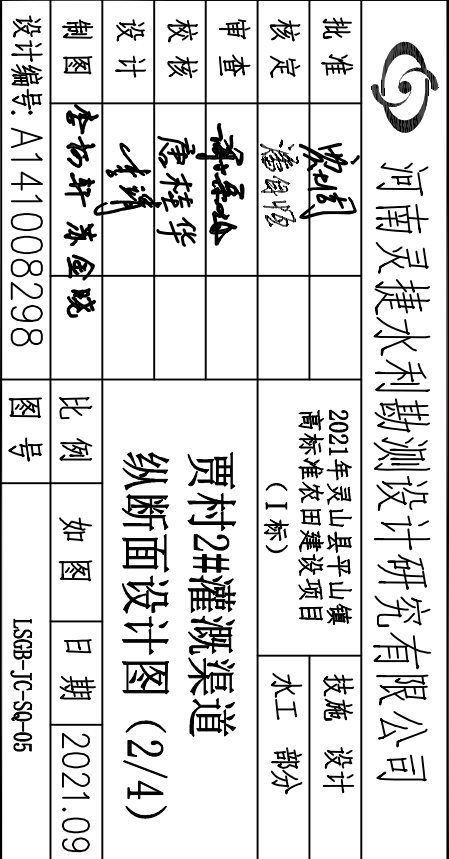 河南灵捷水利勘测设计研究有限公司
批准
核定
潘自恒
审查
校核
唐桂华
设计
李涛
制图
李杨轩 苏金晓
2021年灵山县平山镇
高标准农田建设项目
（Ⅰ标）
技施 设计
水工 部分
贾村2#灌溉渠道
纵断面设计图（2/4）
比例 如图 日期 2021.09
设计编号: A141008298 图号 LSGB-JC-SQ-05